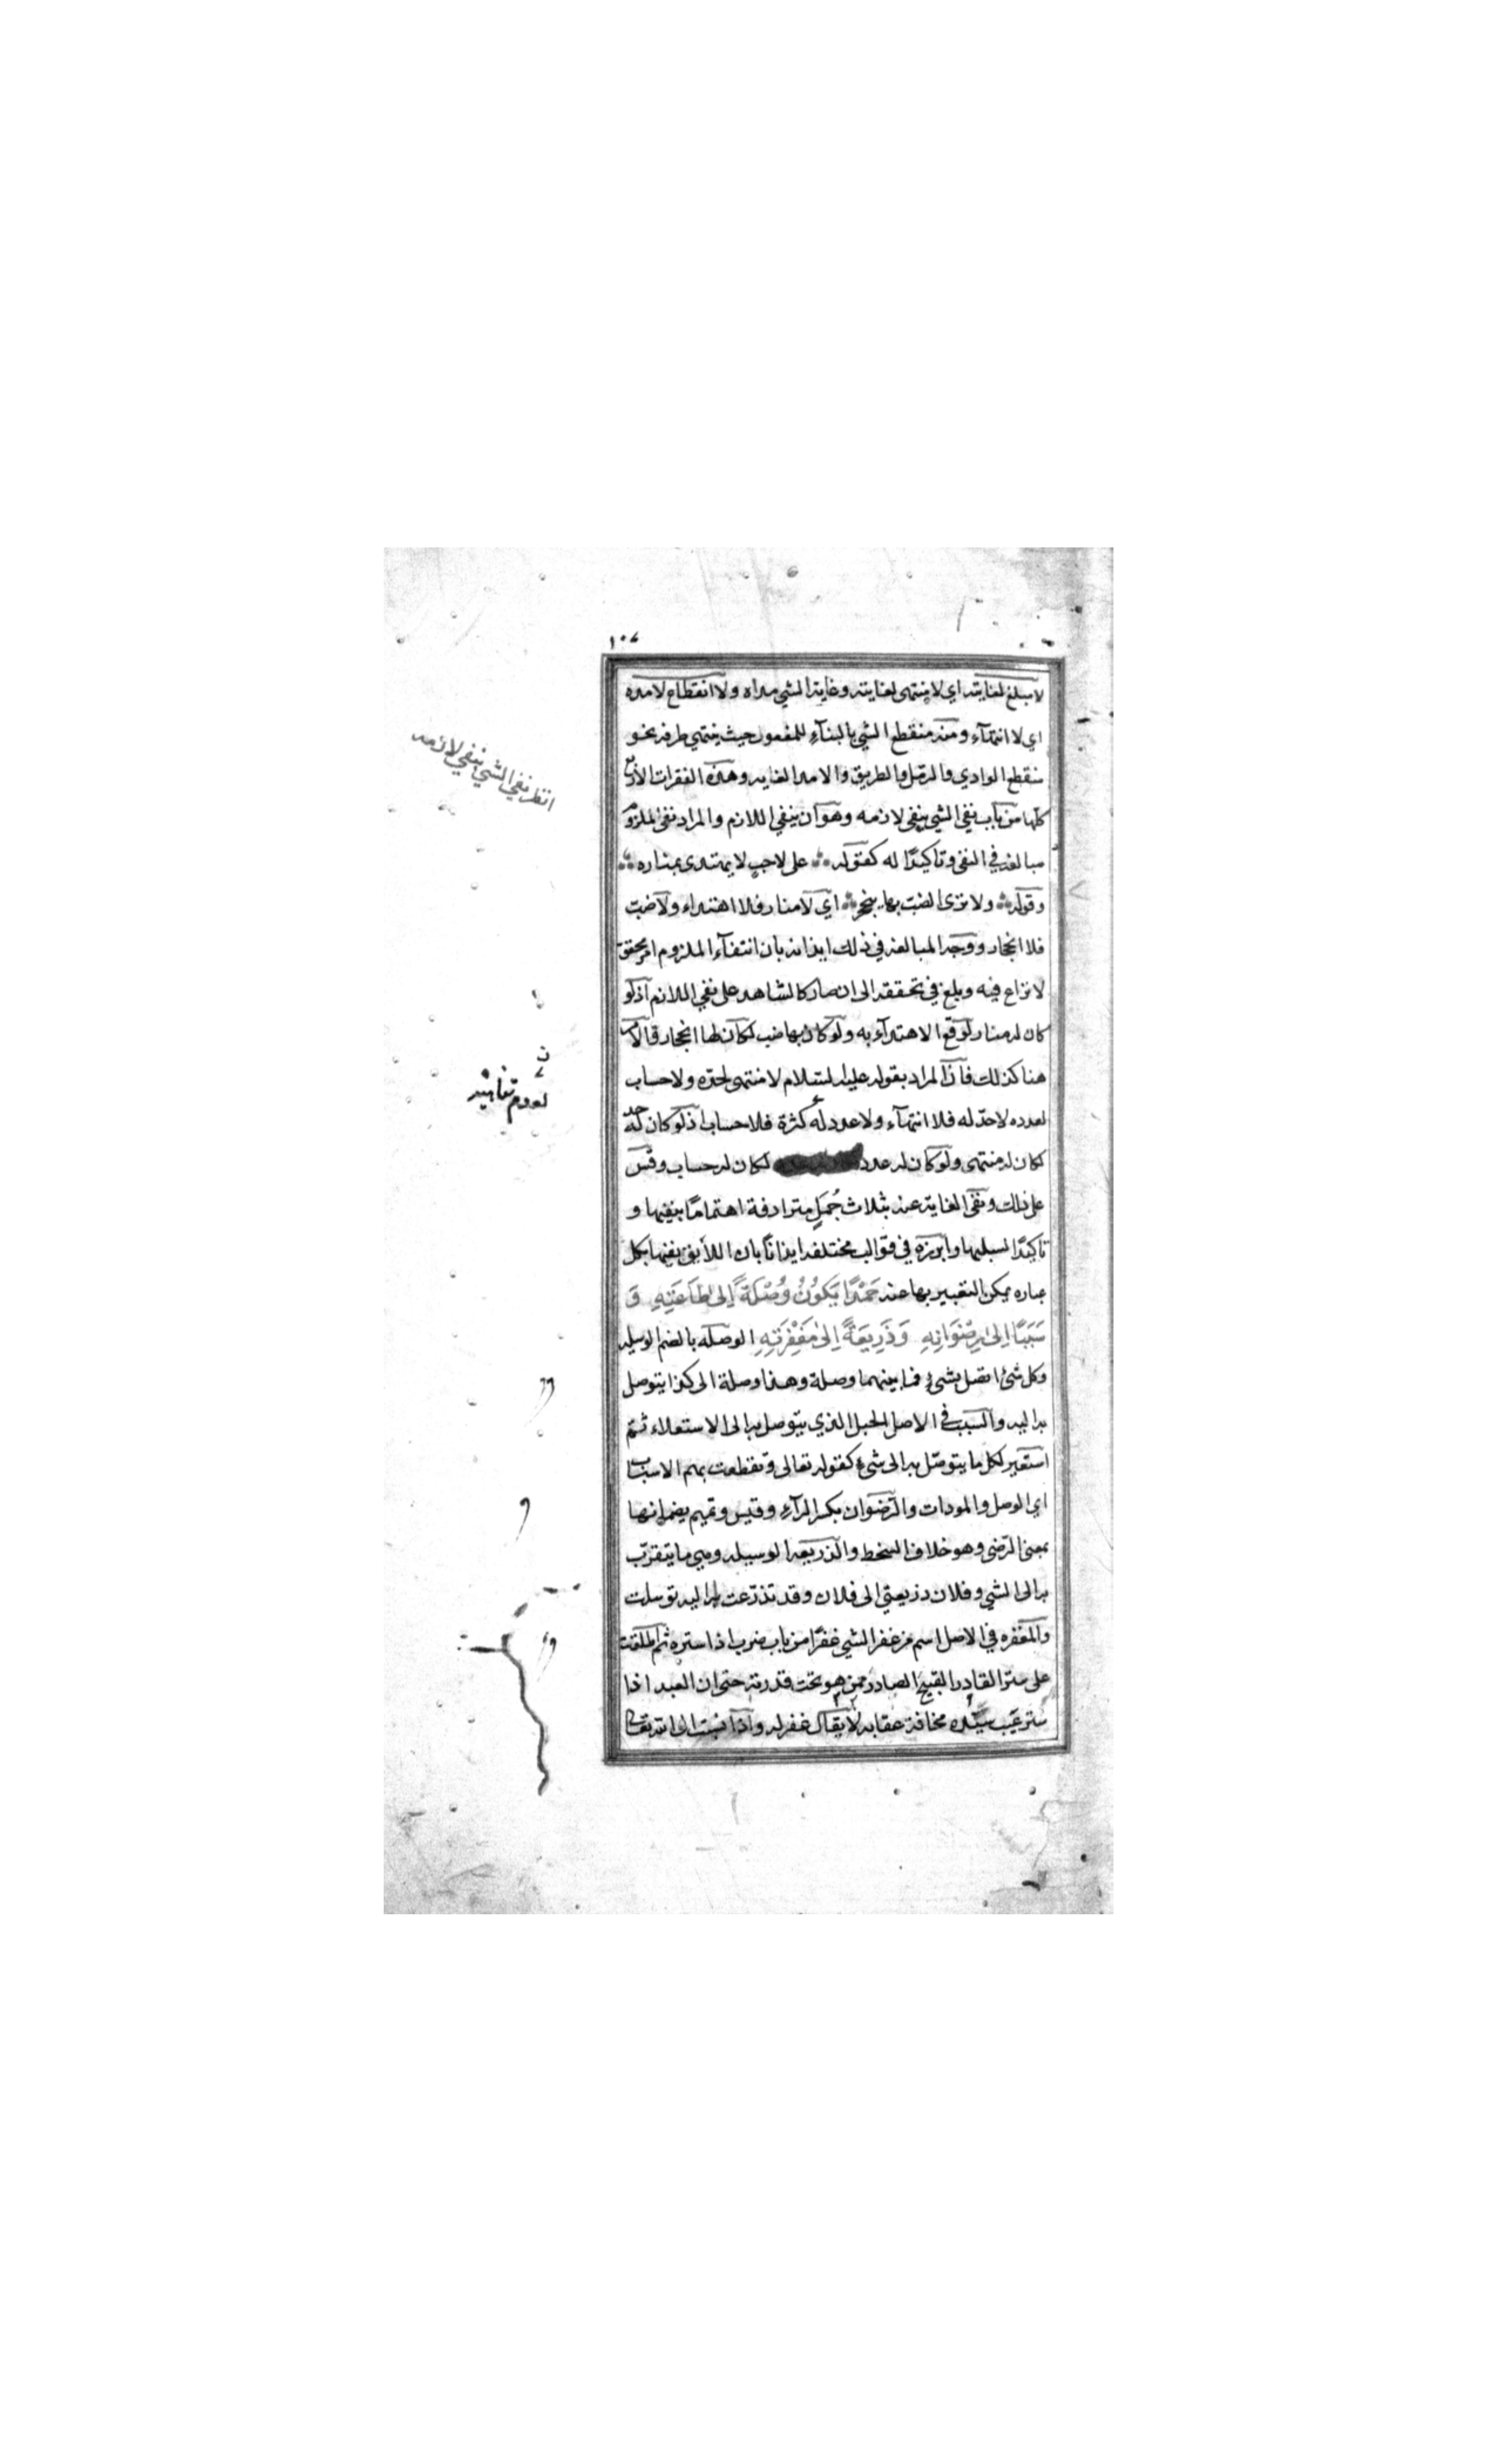 ١٠٧
لا مبلغ لغايته اي لا ينتهى لغايته وغاية الشي مداه ولا انقطاع لامده
اي لا انتهآء ومنه منقطع الشي بالبنآء للمفعول حيث ينتهي طرفه نحو
منقطع الوادي والرمل والطريق والامد الغايه وهذه الفقرات الاربع
كلها من باب نفي الشي بنفي لازمه وهو ان ينفي اللازم والمراد نفى الملزوم
مبالغه في النفى وتاكيدًا له كقوله على لاحبٍ لا يهتدى بمناره
وقوله ولا ترى الضبّ بها ينجحر اي لا منار فلا اهتداء ولا ضبّ
فلا انجحار ووجه المبالغه في ذلك ايذانه بان انتفآء الملزوم امر محقق
لا نزاع فيه وبلغ في تحققه الى ان صار كالشاهد على نفي اللازم اذ لو
كان له منار لوقع الاهتدآء به ولو كان بها ضب لكان لها انجحار قالا
هنا كذلك فان المراد بقوله عليه السلام لا منتهى لحدّه ولا حساب
لعدده لا حدّ له فلا انتهآء ولا عدد له كثرة فلا حساب اذ لو كان له حد
لكان له منتهى ولو كان له عدد لكان له حساب وقس
على ذلك ونفى الغاية عنه بثلاث جُمَلٍ مترادفة اهتمامًا بنفيها و
تاكيدًا لسبلها وابرزه في قوالب مختلفه ايذانًا بان اللائق نفيها بكل
عباره يمكن التعبير بها عنه حَمْدًا يَكُونُ وُصْلَةً اِلى طَاعَتِهِ وَ
سَبَبًا اِلى رِضْوَانِهِ وَذَرِيعَةً اِلى مَغْفِرَتِهِ الوصله بالضم الوسيله
وكل شئ اتصل بشيءٍ فما بينهما وصلة وهذا وصلة الى كذا يتوصل
به اليه والسبب في الاصل الحبل الذي يتوصل به الى الاستعلاء ثم
استعير لكل ما يتوصّل به الى شئ كقوله تعالى وتقطعت بهم الاسباب
اي الوصل والمودات والرّضوان بكسر الرآء وقيس وتميم يضمانها
بمعنى الرّضى وهو خلاف السخط والذريعه الوسيله وهي ما يتقرّب
به الى الشي وفلان ذريعتي الى فلان وقد تذرّعت به اليه توسلت
والمغفره في الاصل اسم من غفر الشي غفرًا من باب ضرب اذا ستره ثم اطلقت
على ستر القادر القبيح الصادر ممن هو تحت قدرته حتى ان العبد اذا
ستر عيب سيّده مخافة عقابه لا يقال غفر له واذا نسبت الى الله تعالى
انظر نفي الشي بنفي لازمه
لعدم تناهيه